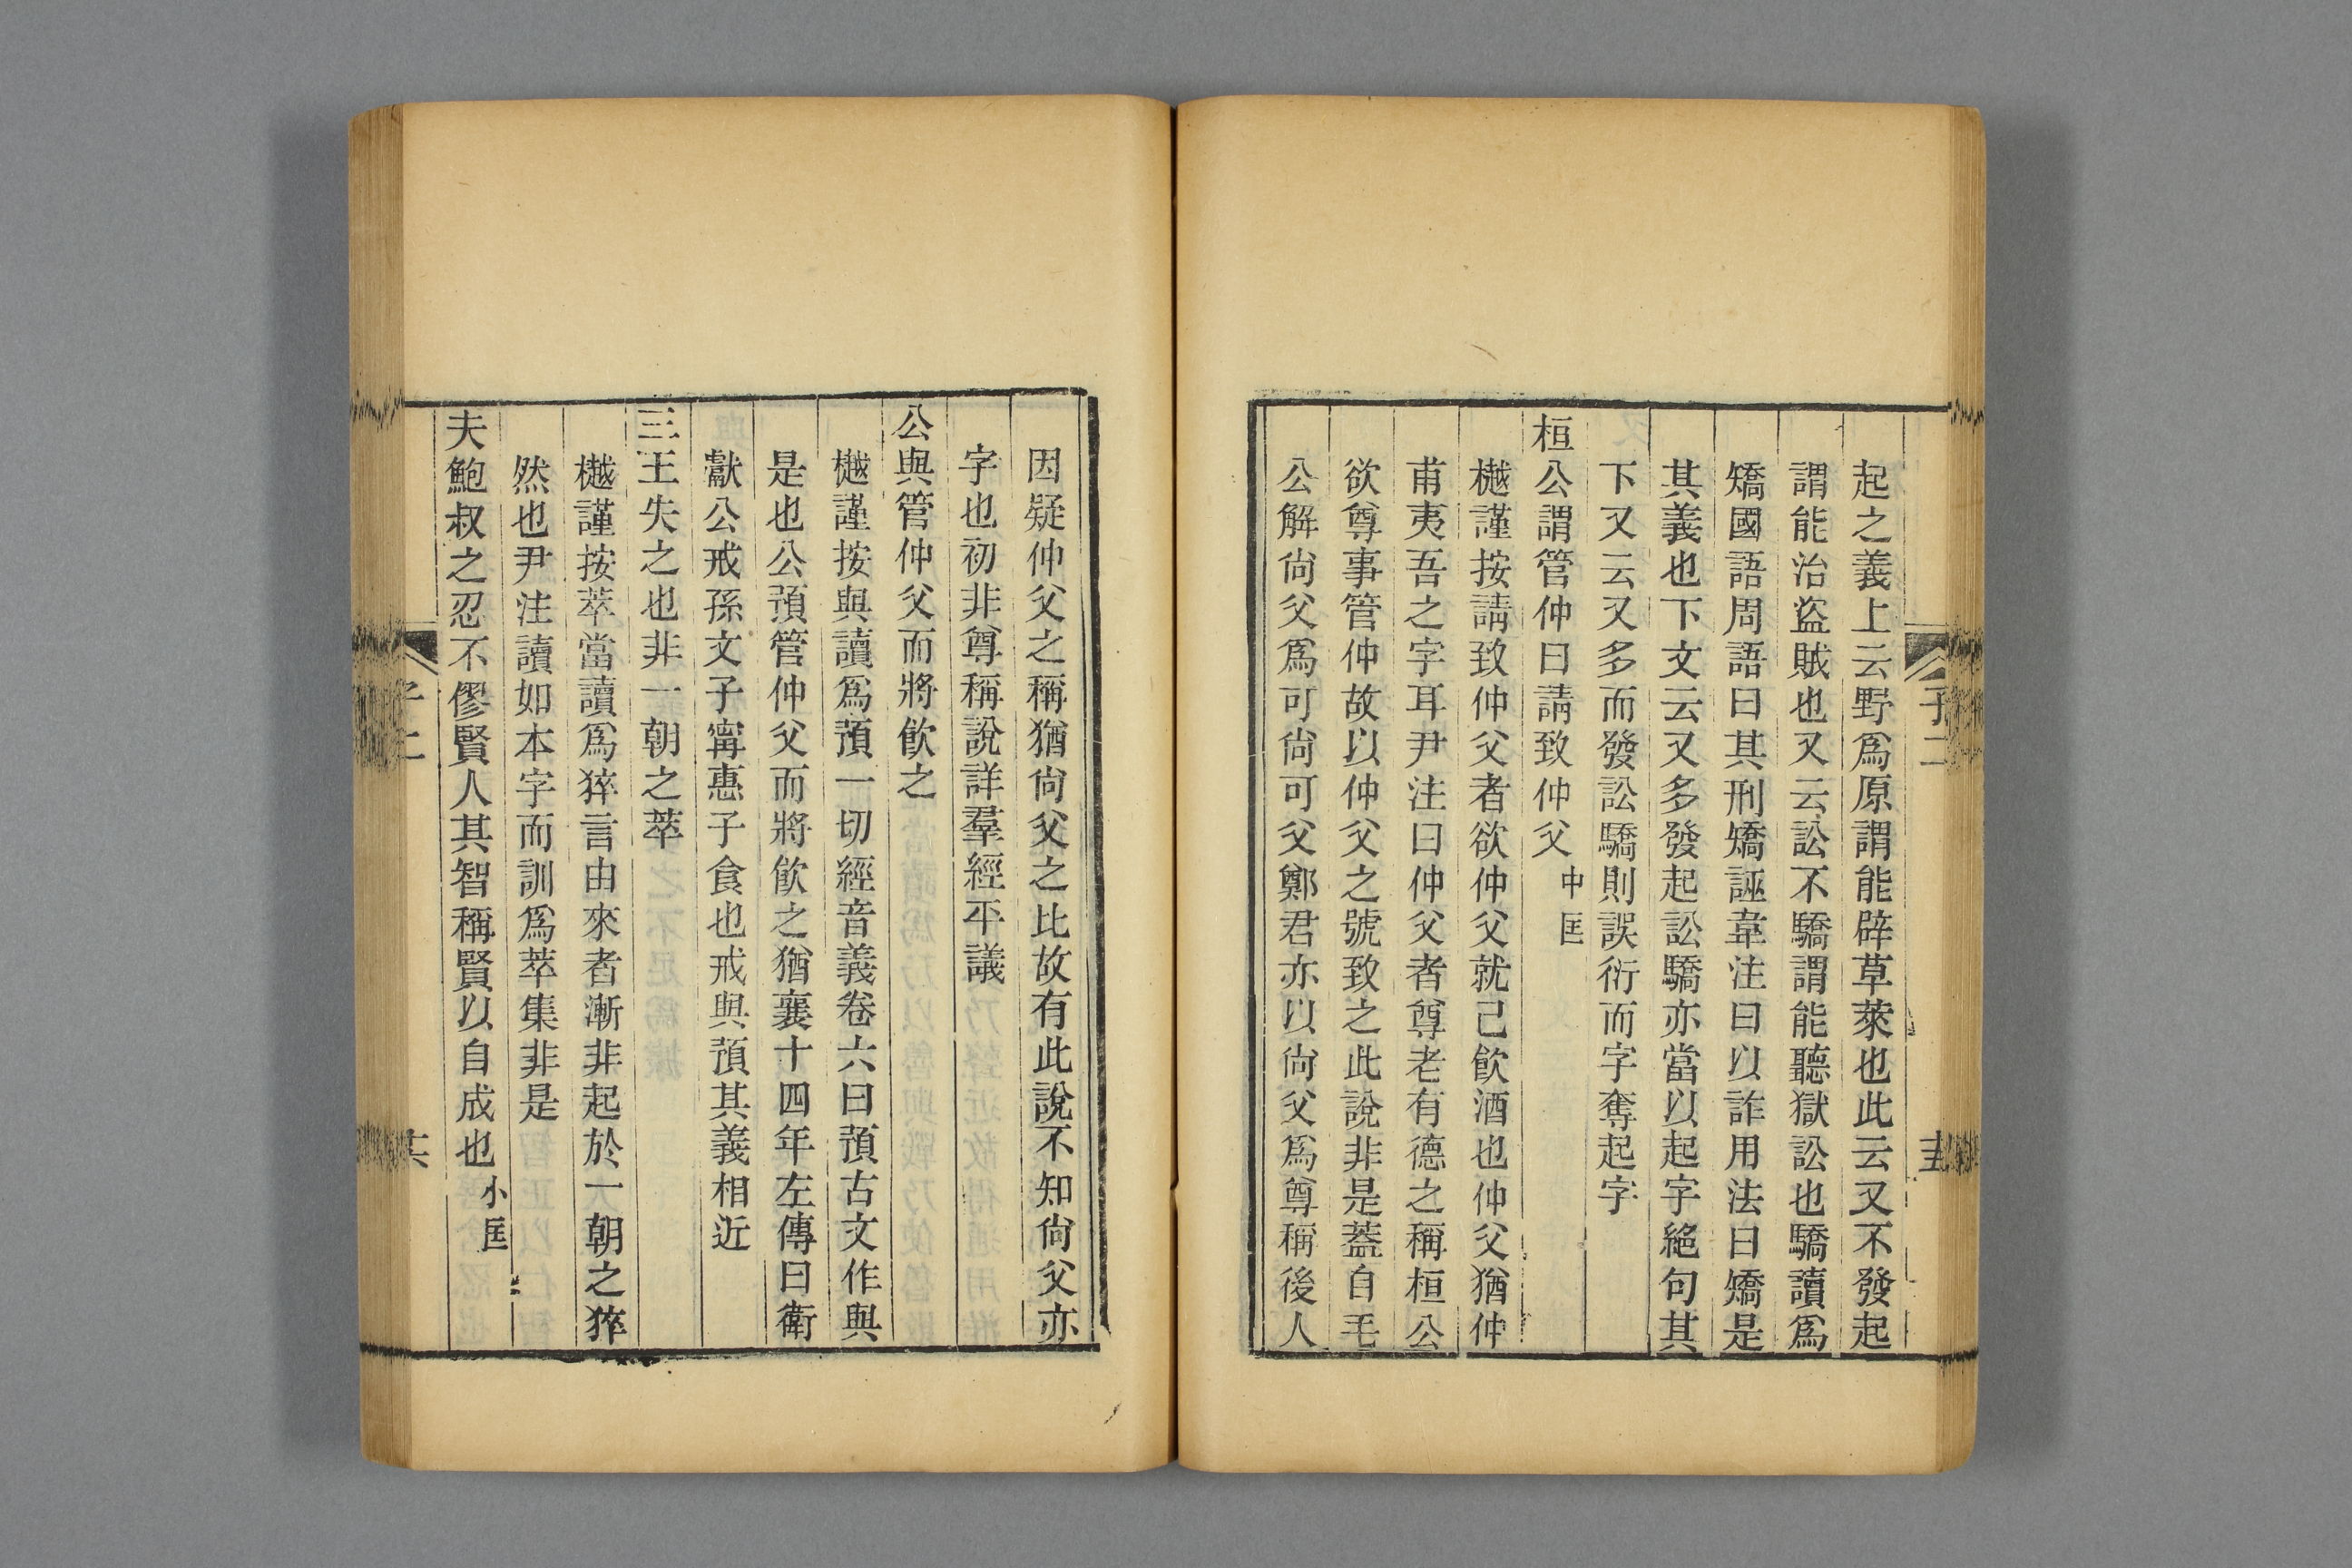 起之義上云野爲原謂能辟草萊也此云又不發起
謂能治盜賊也又云訟不驕謂能聽獄訟也驕讀爲
矯國語周語曰其刑矯誣韋注曰以詐用法曰矯是
其義也下文云又多發起訟驕亦當以起字絕句其
下又云又多而發訟驕則誤衍而字奪起字
桓公謂管仲曰請致仲父中匡
樾謹按請致仲父者欲仲父就己飮酒也仲父猶仲
甫夷吾之字耳尹注曰仲父者尊老有德之稱桓公
欲尊事管仲故以仲父之號致之此說非是蓋自毛
公解尙父爲可尙可父鄭君亦以尙父爲尊稱後人
子二
五
因疑仲父之稱猶尙父之比故有此說不知尙父亦
字也初非尊稱說詳羣經平議
公與管仲父而將飮之
樾謹按與讀爲預一切經音義卷六曰預古文作與
是也公預管仲父而將飮之猶襄十四年左傳曰衛
獻公戒孫文子甯惠子食也戒與預其義相近
三王失之也非一朝之萃
樾謹按萃當讀爲猝言由來者漸非起於一朝之猝
然也尹注讀如本字而訓爲萃集非是
夫鮑叔之忍不僇賢人其智稱賢以自成也小匡